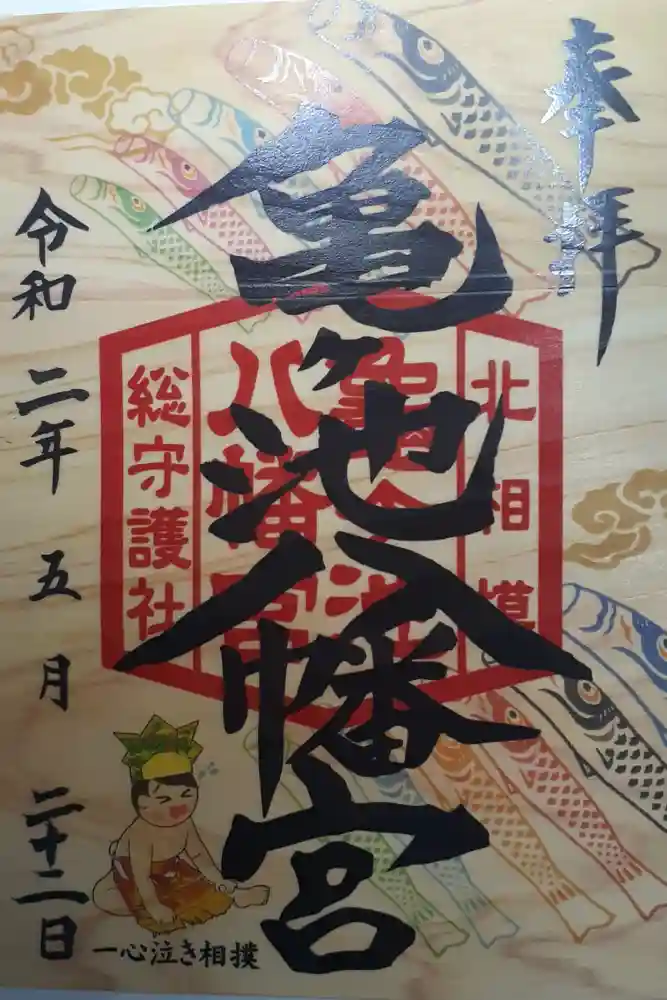 奉拝
北相模
亀ヶ池
八幡宮
総守護社
亀ヶ池八幡宮
令和二年五月二十二日
一心泣き相撲